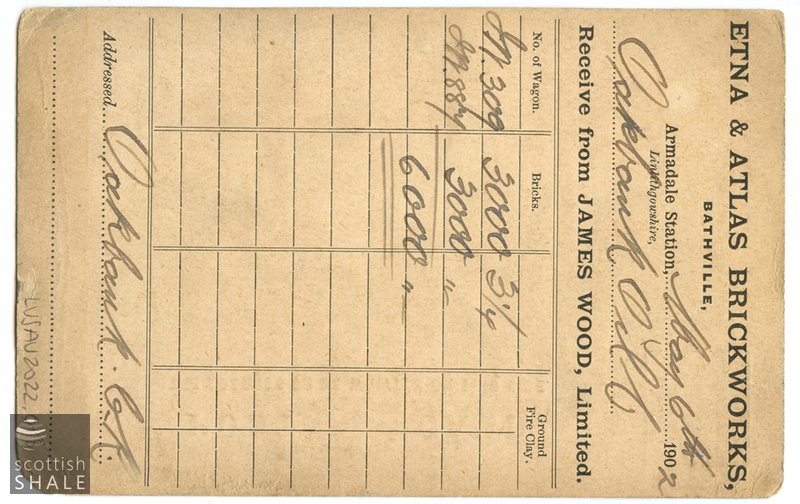 ETNA & ATLAS BRICKWORKS,
BATHVILLE,
Armadale Station, May 6th 1902
Linlithgowshire,
Oakbank Oil
Receive from JAMES WOOD, Limited.
No. of Wagon. Bricks. Ground Fire Clay.
309 3000 3¼
884 3000 "
6000 "
Addressed Oakbank.
LVSAV2022
scottish
SHALE